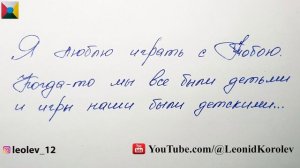 Я люблю играть с Тобою.
Когда-то мы все были детьми
и игры наши были детскими...
leolev_12
YouTube.com/@LeonidKorolev